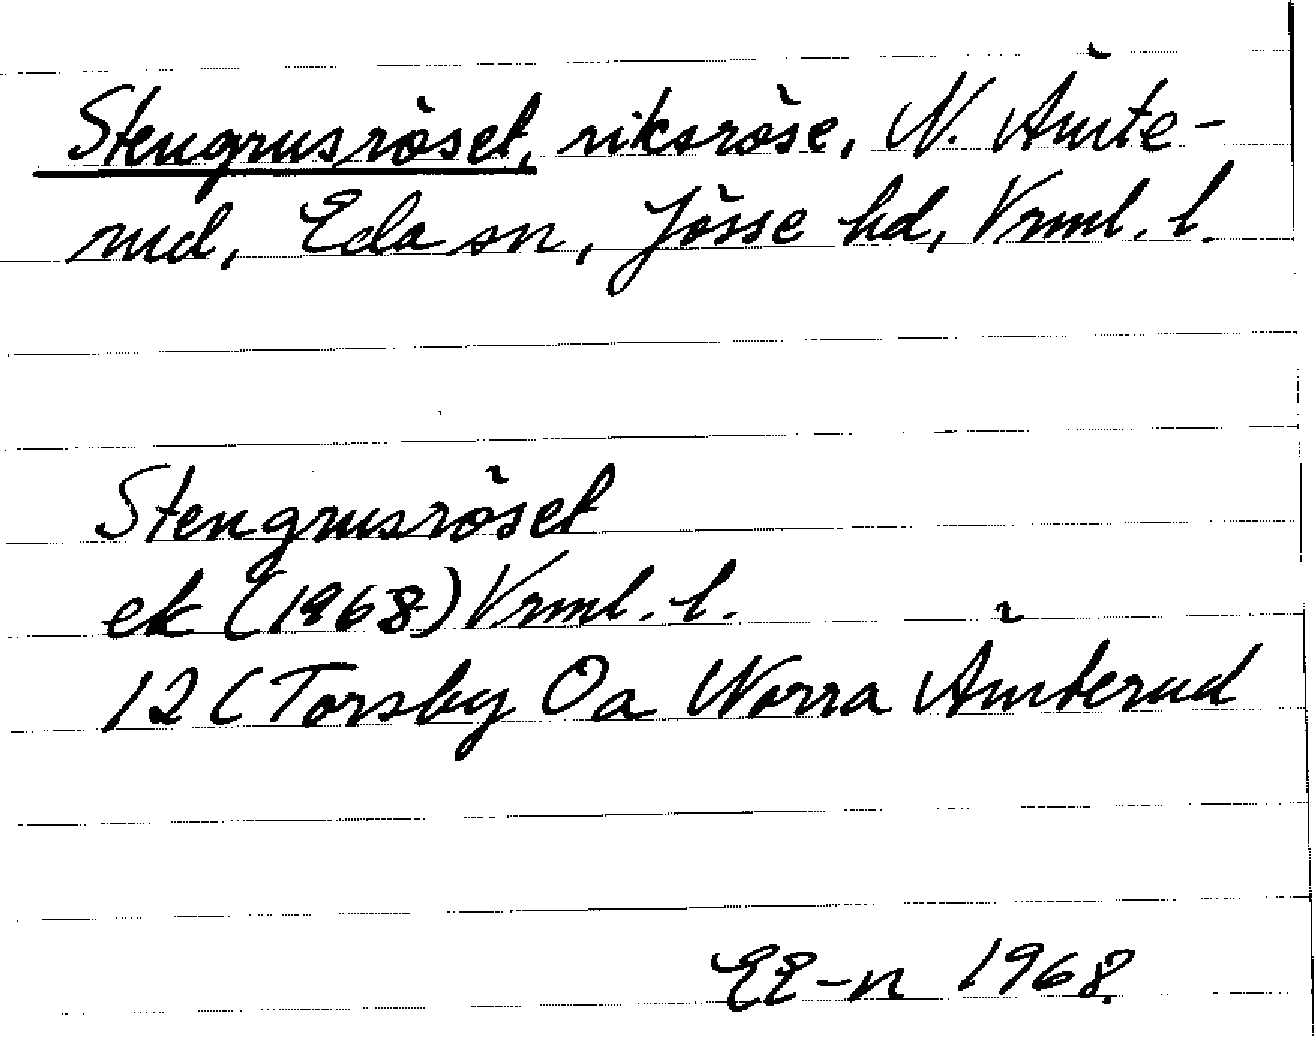 Stengrusröset, riksröse, N. Ämte-
rud, Eda sn, Jösse hd, Vrml. l.
Stengrusröset
ek (1968) Vrml. l.
12 C Torsby Oa Norra Ämterud
EE-n 1968.